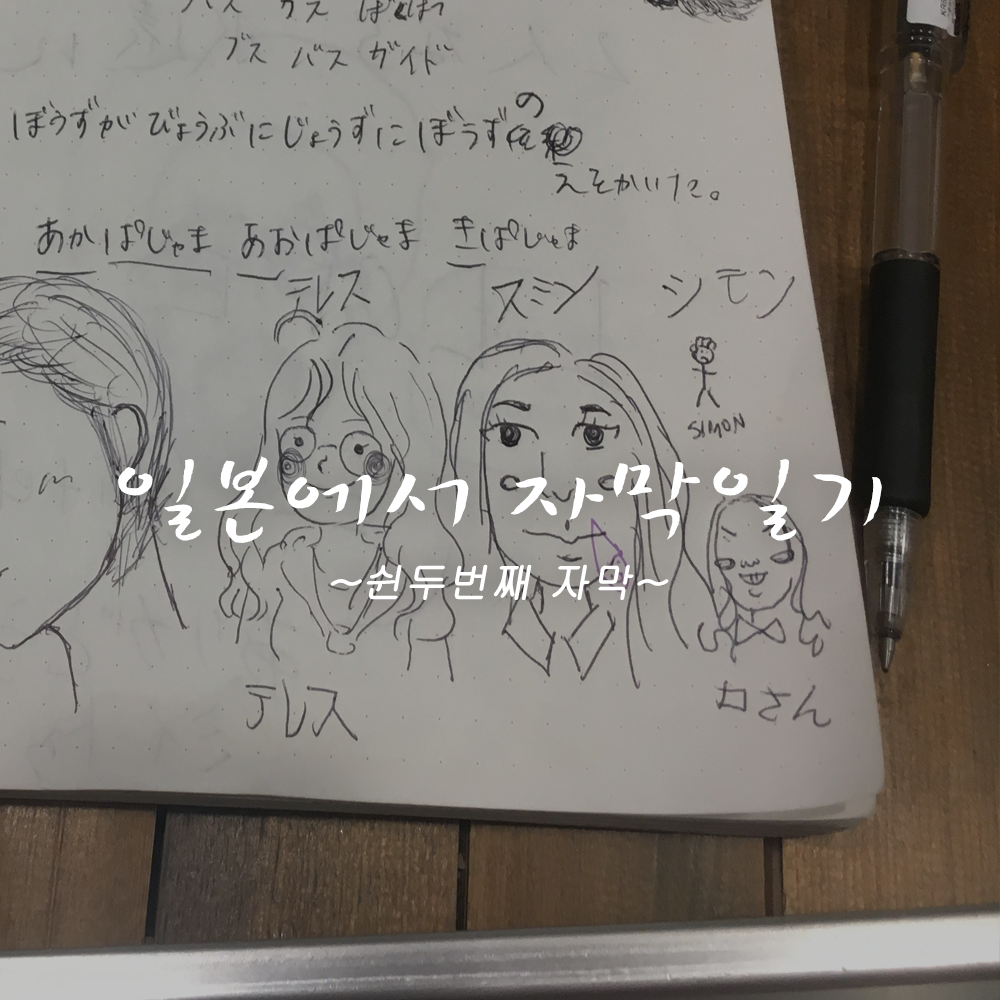 バス ガス ばくはつ
ブス バス ガイド
ぼうずが びょうぶに じょうずに ぼうずの
えをかいた。
あかぱじゃま あおぱじゃま きぱじゃま
テレス スミン シモン
SIMON
일본에서 자막일기
~쉰두번째 자막~
テレス
ロさん